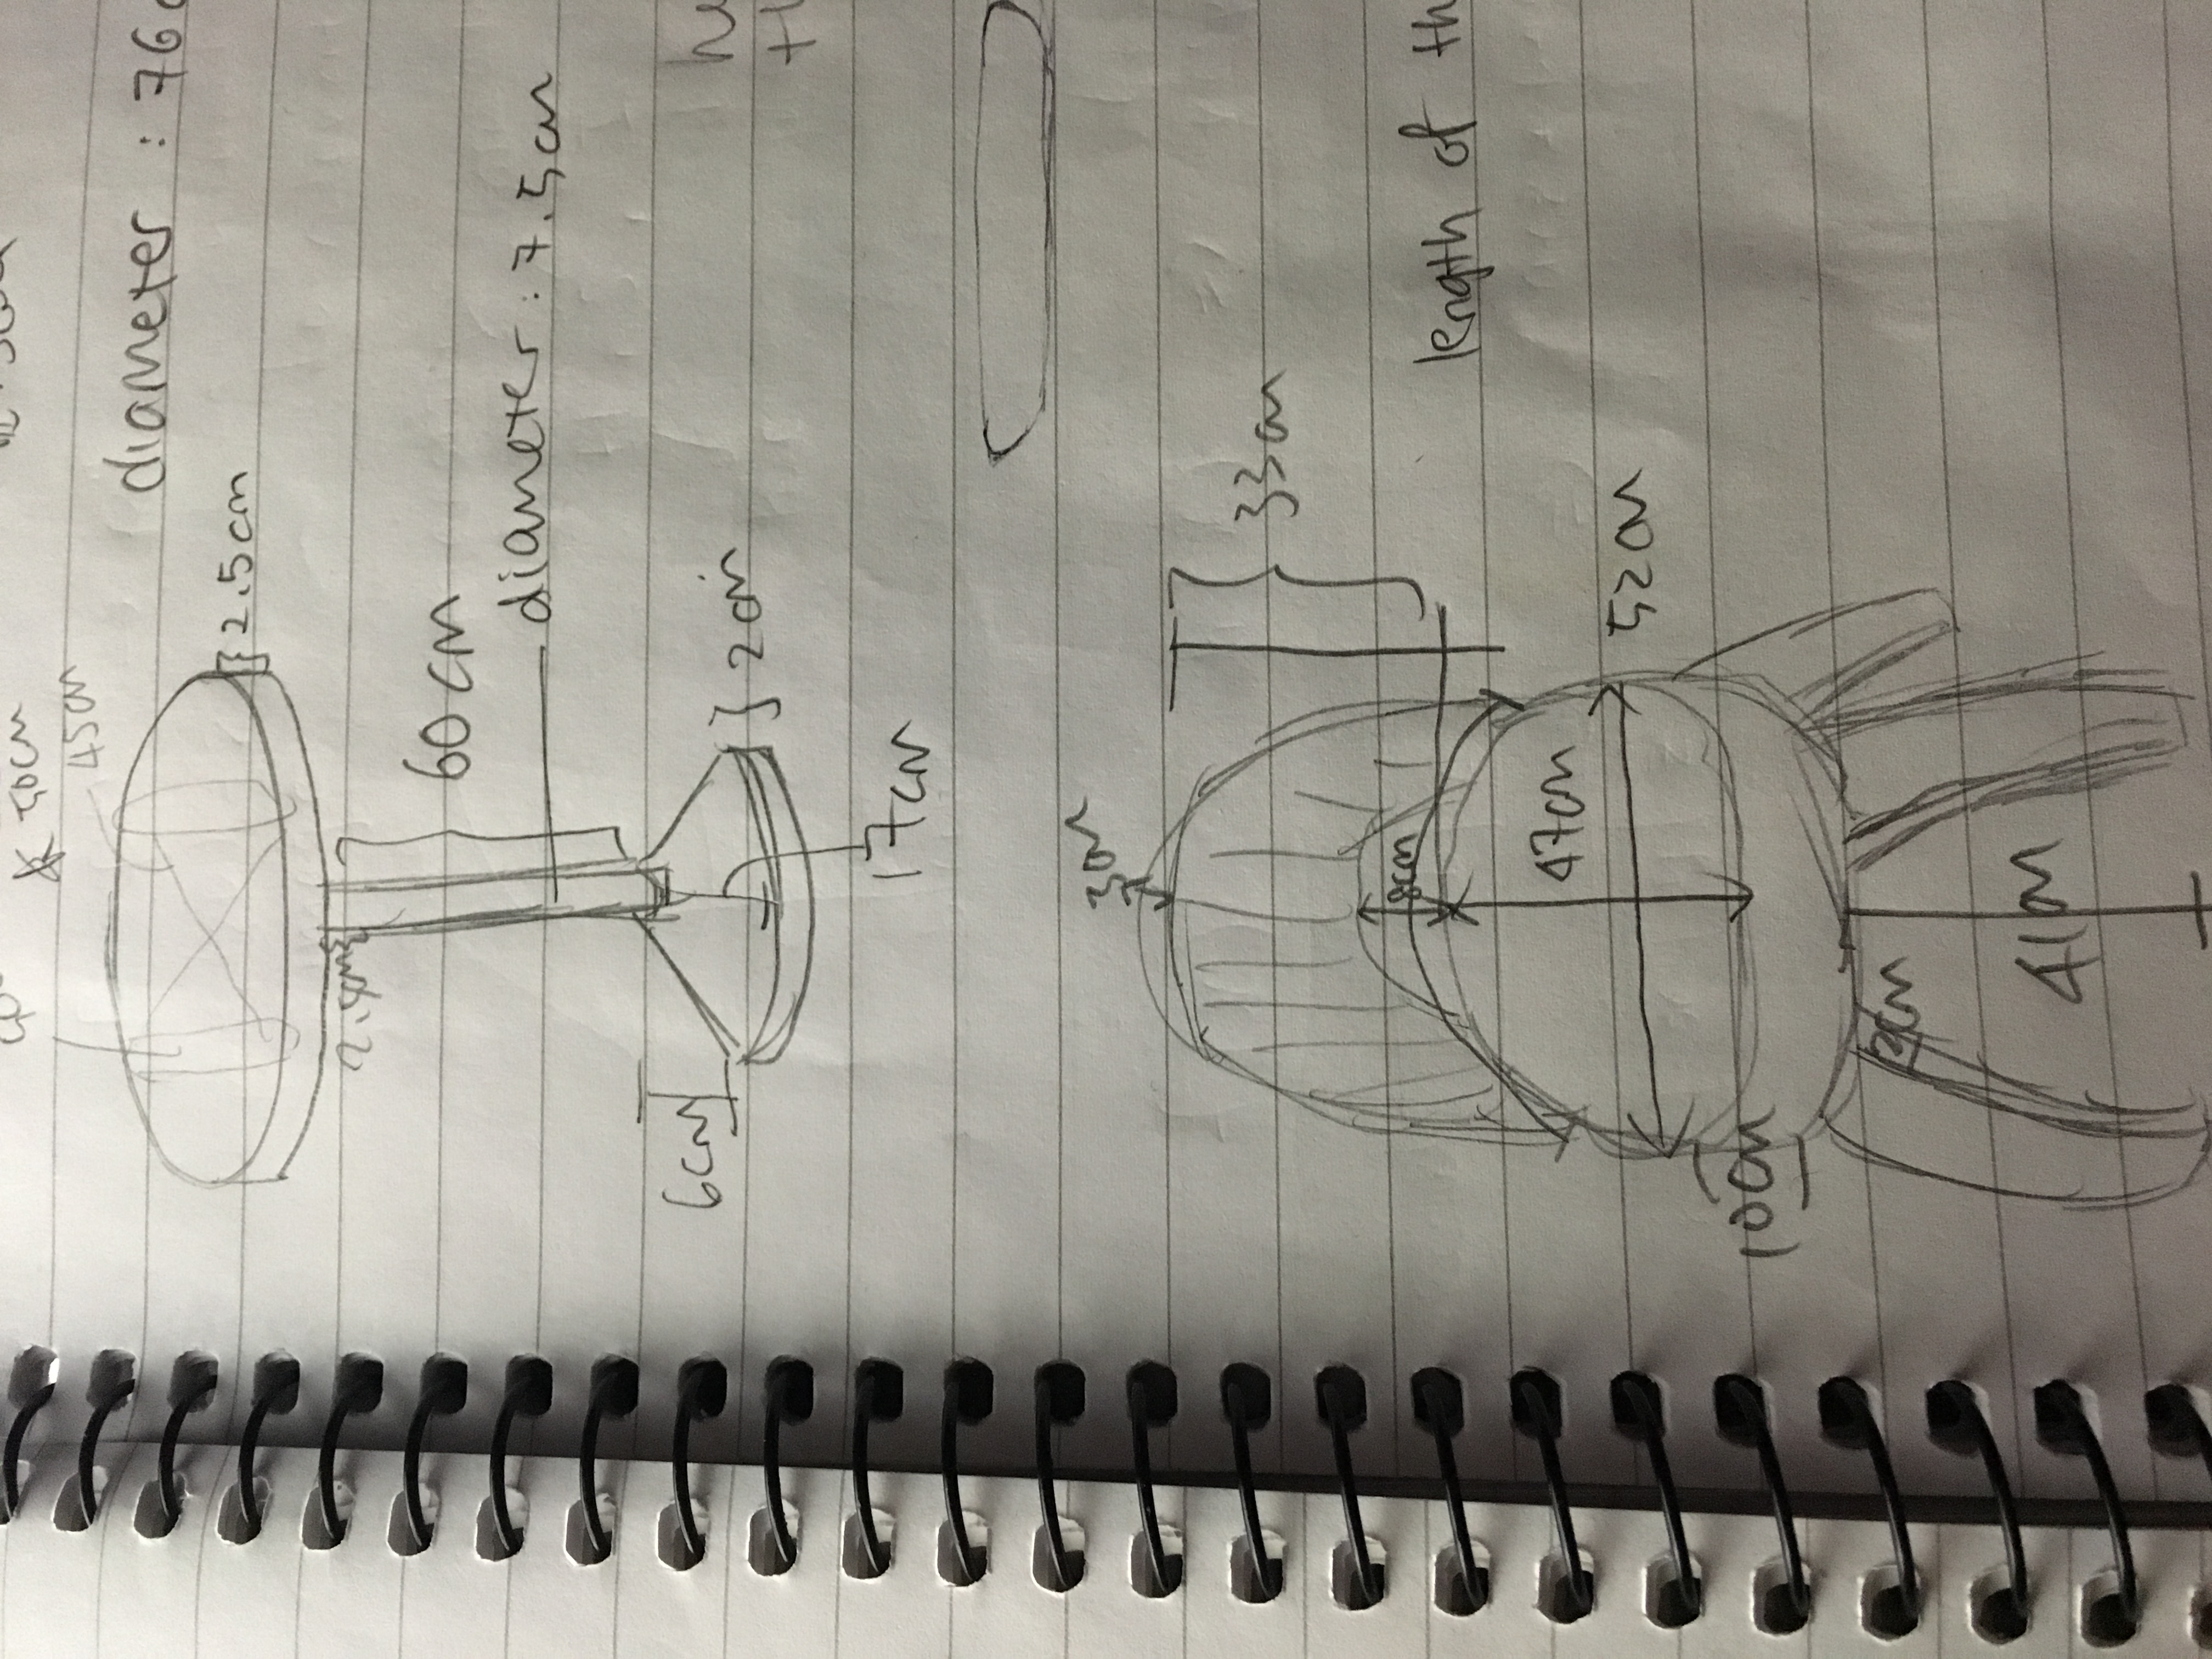 50cm
45cm
diameter : 76
2.5cm
60cm
diameter : 7.5cm
6cm
2cm
17cm
3cm
33cm
8cm
length of th
47cm
52cm
10cm
41cm